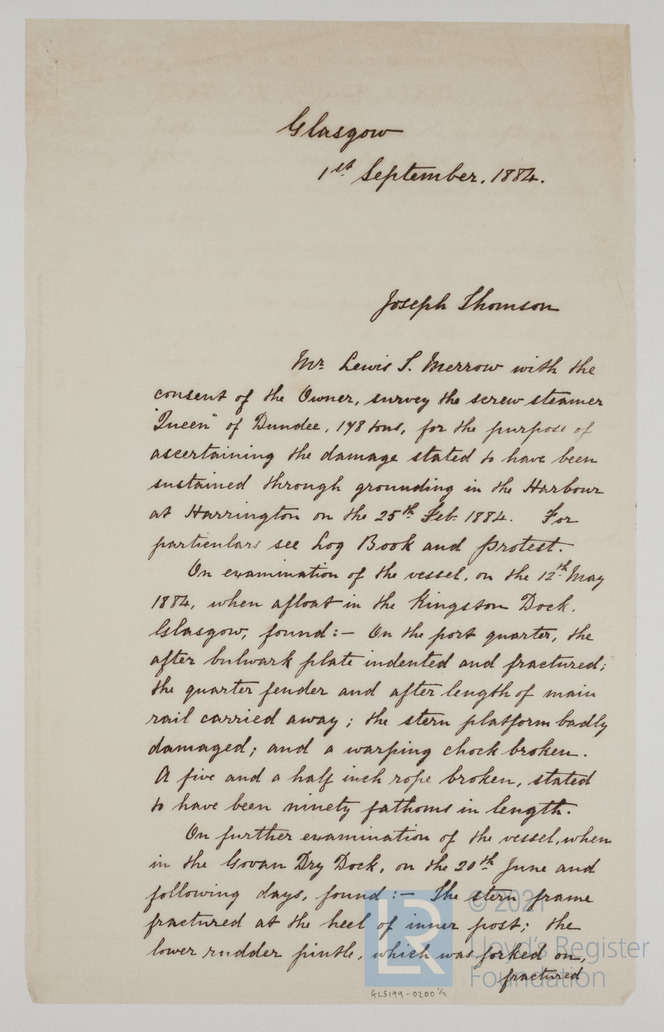 Glasgow
1st September, 1884.
Joseph Thomson
Mr Lewis S. Merrow with the
consent of the Owner, survey the screw steamer
"Queen" of Dundee, 178 tons, for the purpose of
ascertaining the damage stated to have been
sustained through grounding in the Harbour
at Harrington on the 25th Feb. 1884. For
particulars see Log Book and Protest.
On examination of the vessel, on the 12th May
1884, when afloat in the Kingston Dock,
Glasgow, found:— On the port quarter, the
after bulwark plate indented and fractured;
the quarter fender and after length of main
rail carried away; the stern platform badly
damaged; and a warping chock broken.
A five and a half inch rope broken, stated
to have been ninety fathoms in length.
On further examination of the vessel, when
in the Govan Dry Dock, on the 20th June and
following days, found:— The stern frame
fractured at the heel of inner post; the
lower rudder pintle, which was forked on,
fractured
© 2021
Lloyd's Register
Foundation
LR
GLS199-0200 1/2